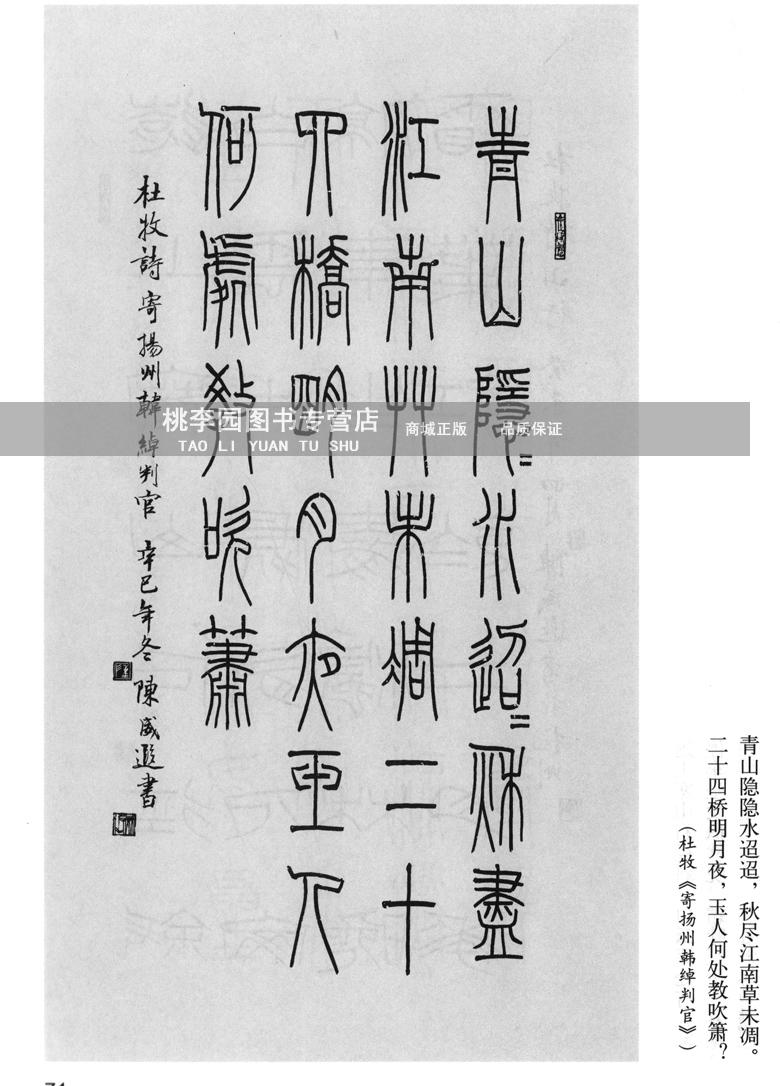 青山隱〻水迢〻秋盡
江南艸未凋二十
四橋明月夜玉人
何處教吹蕭
杜牧詩寄揚州韓綽判官 辛巳年冬 陳 書
青山隐隐水迢迢，秋尽江南草未凋。
二十四桥明月夜，玉人何处教吹箫？
（杜牧《寄扬州韩绰判官》）
桃李园图书专营店
TAO LI YUAN TU SHU
商城正版 品质保证